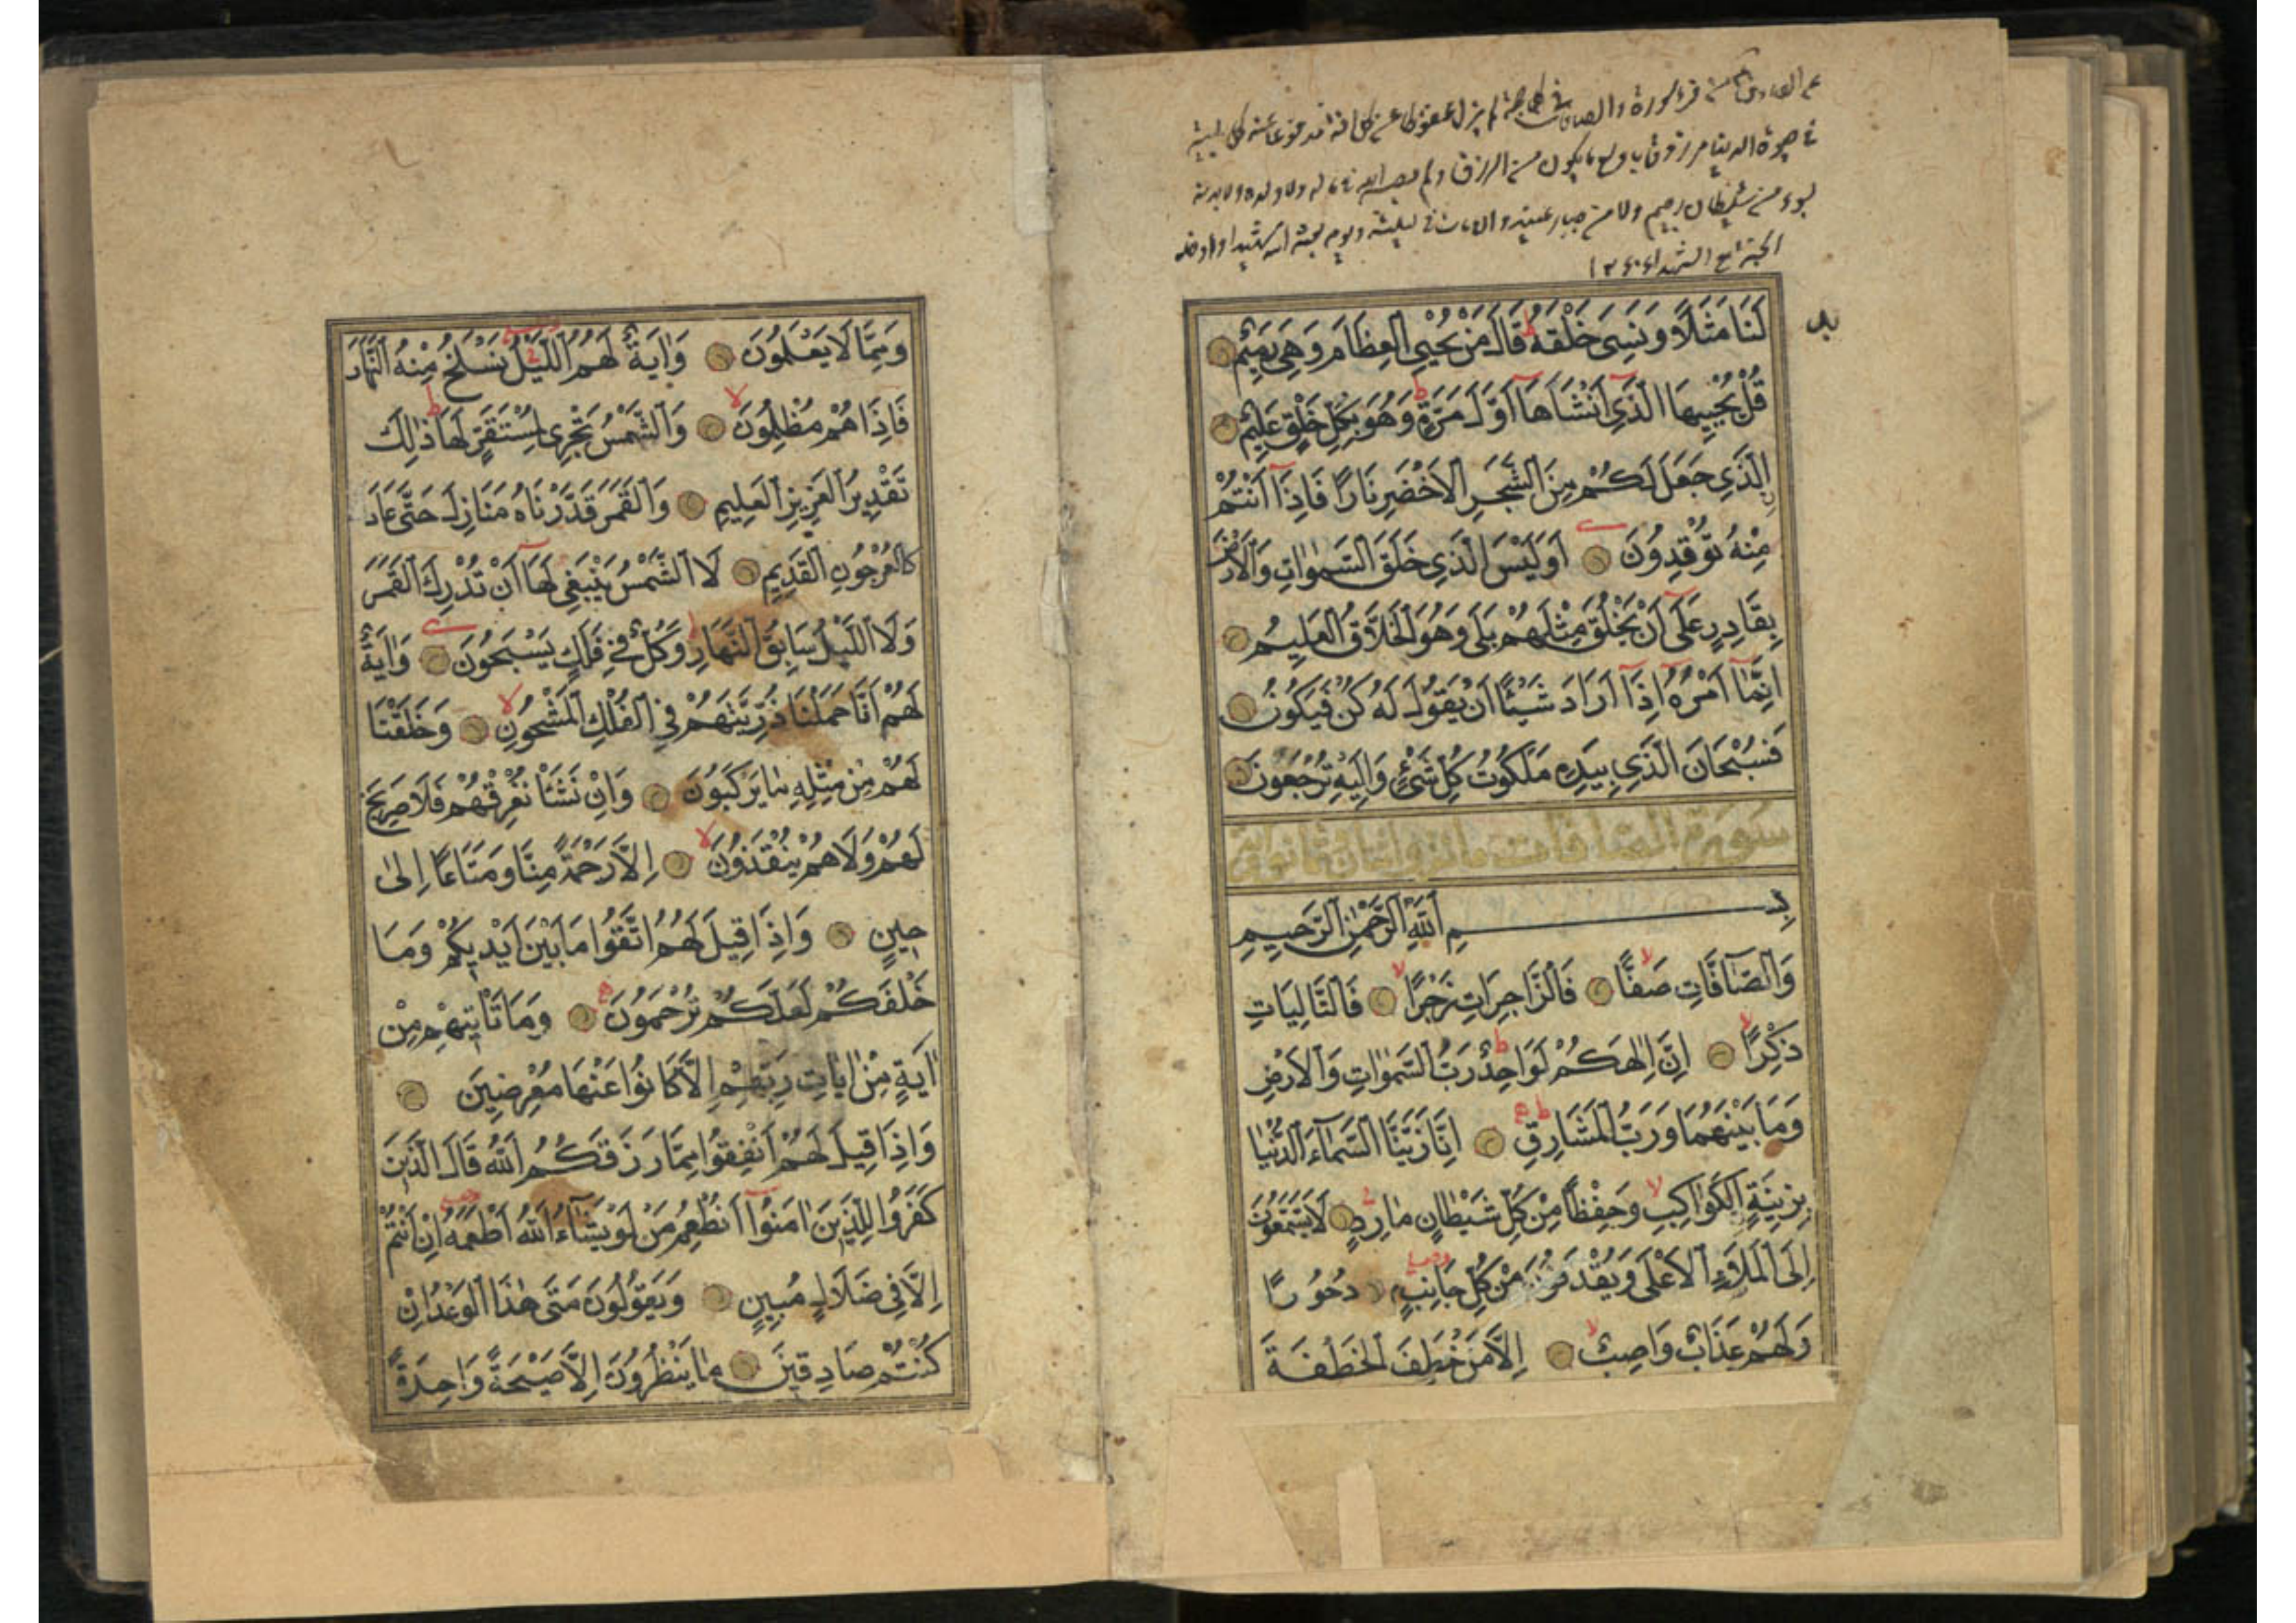 عن الصادق من قرأ سورة والصافات في كل جمعة لم يزل محفوظا من كل آفة مدفوعا عنه كل بلية
في حيوة الدنيا مرزوقا باوسع ما يكون من الرزق ولم يصبه الله في ماله ولا ولده ولا بدنه
بسوء من شيطان رجيم ولا من جبار عنيد وان مات في ليلته ويومه بعثه الله شهيدا وادخله
الجنة مع الشهداء
لَنَا مَثَلًا وَنَسِيَ خَلْقَهُ قَالَ مَنْ يُحْيِي الْعِظَامَ وَهِيَ رَمِيمٌ
قُلْ يُحْيِيهَا الَّذِي أَنْشَأَهَا أَوَّلَ مَرَّةٍ وَهُوَ بِكُلِّ خَلْقٍ عَلِيمٌ
الَّذِي جَعَلَ لَكُمْ مِنَ الشَّجَرِ الْأَخْضَرِ نَارًا فَإِذَا أَنْتُمْ
مِنْهُ تُوقِدُونَ أَوَلَيْسَ الَّذِي خَلَقَ السَّمٰوَاتِ وَالْأَرْضَ
بِقَادِرٍ عَلَى أَنْ يَخْلُقَ مِثْلَهُمْ بَلَى وَهُوَ الْخَلَّاقُ الْعَلِيمُ
اِنَّمَا اَمْرُهُ اِذَا اَرَادَ شَيْئًا اَنْ يَقُولَ لَهُ كُنْ فَيَكُونُ
فَسُبْحَانَ الَّذِي بِيَدِهِ مَلَكُوتُ كُلِّ شَيْءٍ وَاِلَيْهِ تُرْجَعُونَ
سورة الصافات مائة واثنان وثمانون آية
بِسْمِ اللهِ الرَّحْمٰنِ الرَّحِيمِ
وَالصَّافَّاتِ صَفًّا فَالزَّاجِرَاتِ زَجْرًا فَالتَّالِيَاتِ
ذِكْرًا اِنَّ اِلٰهَكُمْ لَوَاحِدٌ رَبُّ السَّمٰوَاتِ وَالْاَرْضِ
وَمَا بَيْنَهُمَا وَرَبُّ الْمَشَارِقِ اِنَّا زَيَّنَّا السَّمَاءَ الدُّنْيَا
بِزِينَةٍ الْكَوَاكِبِ وَحِفْظًا مِنْ كُلِّ شَيْطَانٍ مَارِدٍ لَا يَسَّمَّعُونَ
اِلَى الْمَلَاءِ الْاَعْلَى وَيُقْذَفُونَ مِنْ كُلِّ جَانِبٍ دُحُورًا
وَلَهُمْ عَذَابٌ وَاصِبٌ اِلَّا مَنْ خَطِفَ الْخَطْفَةَ
وَمِمَّا لَا يَعْلَمُونَ وَاٰيَةٌ لَهُمُ اللَّيْلُ نَسْلَخُ مِنْهُ النَّهَارَ
فَاِذَا هُمْ مُظْلِمُونَ وَالشَّمْسُ تَجْرِي لِمُسْتَقَرٍّ لَهَا ذٰلِكَ
تَقْدِيرُ الْعَزِيزِ الْعَلِيمِ وَالْقَمَرَ قَدَّرْنَاهُ مَنَازِلَ حَتَّى عَادَ
كَالْعُرْجُونِ الْقَدِيمِ لَا الشَّمْسُ يَنْبَغِي لَهَا اَنْ تُدْرِكَ الْقَمَرَ
وَلَا اللَّيْلُ سَابِقُ النَّهَارِ وَكُلٌّ فِي فَلَكٍ يَسْبَحُونَ وَاٰيَةٌ
لَهُمْ اَنَّا حَمَلْنَا ذُرِّيَّتَهُمْ فِي الْفُلْكِ الْمَشْحُونِ وَخَلَقْنَا
لَهُمْ مِنْ مِثْلِهِ مَا يَرْكَبُونَ وَاِنْ نَشَأْ نُغْرِقْهُمْ فَلَا صَرِيخَ
لَهُمْ وَلَا هُمْ يُنْقَذُونَ اِلَّا رَحْمَةً مِنَّا وَمَتَاعًا اِلٰى
حِينٍ وَاِذَا قِيلَ لَهُمُ اتَّقُوا مَا بَيْنَ اَيْدِيكُمْ وَمَا
خَلْفَكُمْ لَعَلَّكُمْ تُرْحَمُونَ وَمَا تَأْتِيهِمْ مِنْ
اٰيَةٍ مِنْ اٰيَاتِ رَبِّهِمْ اِلَّا كَانُوا عَنْهَا مُعْرِضِينَ
وَاِذَا قِيلَ لَهُمْ اَنْفِقُوا مِمَّا رَزَقَكُمُ اللهُ قَالَ الَّذِينَ
كَفَرُوا لِلَّذِينَ اٰمَنُوا اَنُطْعِمُ مَنْ لَوْ يَشَاءُ اللهُ اَطْعَمَهُ اِنْ اَنْتُمْ
اِلَّا فِي ضَلَالٍ مُبِينٍ وَيَقُولُونَ مَتَى هٰذَا الْوَعْدُ اِنْ
كُنْتُمْ صَادِقِينَ مَا يَنْظُرُونَ اِلَّا صَيْحَةً وَاحِدَةً